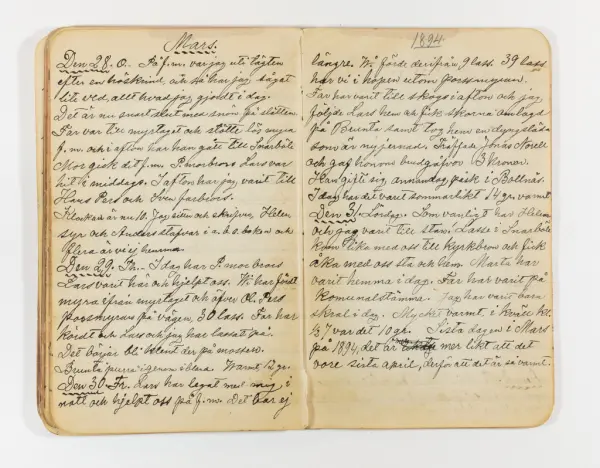 Mars.
Den 28. O. På f.m. var jag uti lägten
efter en höskrind, och så har jag sågat
lite ved, allt hvad jag gjordt i dag.
Det är nu snart slut med snön på slåtten.
Far var till myrtaget och slotte lös myra
f.m. och i afton har han gått till Snarböle
Mor gick dit f.m. P. morbrors Lars var
hit i middags. I afton har jag varit till
Hans Pers och Sven farbrors.
Klockan är nu 10. Jag sitter och skrifver, Helen
syr och Anders stafvar i a.b.c. boken och
flera är vi ej hemma.
Den 29. Th. I dag har P. morbrors
Lars varit här och hjelpt oss. Vi har fördt
myra ifrån myrtaget och äfven Ol. Pers
porsmyran på vägen, 30 lass. Far har
kördt och Lars och jag har lassat på.
Det börjar bli blött der på mossen.
Brunta purra igenom ibland. Warmt 12 gr.
Den 30. Fr. Lars har legat med mig, i
natt och hjelpt oss på f.m. Det bar ej
1894
längre. Wi förde derifrån 9 lass. 39 lass
har vi i högen utom porsmyran.
Far har varit till skogs i afton och jag
följde Lars hem och fick skorna omlagd
på Brunta samt tog hem en dyngsläda
som är ny järnad. Träffade Jonas Norell
och gaf honom brudgåfvor 3 kronor.
Han gifte sig annandag påsk i Bollnäs.
I dag har det varit sommarlikt 14 gr. varmt
Den 31. Lördag. Som vanligt har Helena
och jag varit till stan. Lasse i Snarböle
kom lika med oss till kyrkbron och fick
åka med oss sta och hem. Marta har
varit hemma i dag. Far har varit på
komunalstämma. Jag har varit bara
skral i dag. Mycket varmt, i kväll kl.
½ 7 var det 10 gr. Sista dagen i Mars
på 1894, det är mer likt att det
vore sista april, derför att det är så varmt.